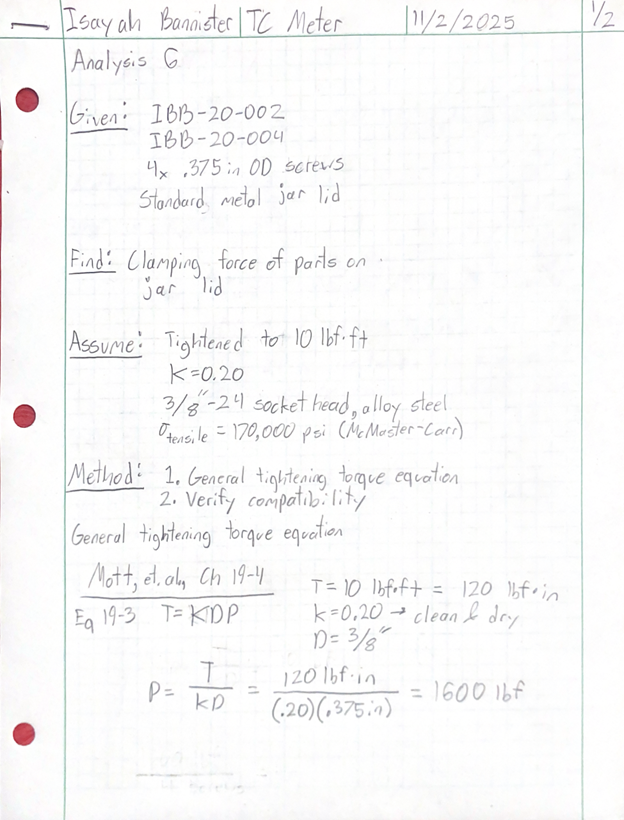 Isayah Bannister | TC Meter | 11/2/2025 1/2
Analysis 6
Given: IBB-20-002
IBB-20-004
4x .375in OD screws
Standard metal jar lid
Find: Clamping force of parts on
jar lid
Assume: Tightened to 10 lbf·ft
K=0.20
3/8"-24 socket head, alloy steel
σtensile = 170,000 psi (McMaster-Carr)
Method: 1. General tightening torque equation
2. Verify compatibility
General tightening torque equation
Mott, et. al, Ch 19-4
Eq 19-3 T=KDP
T=10 lbf·ft = 120 lbf·in
k=0.20 → clean & dry
D=3/8"
P= T/kD = 120 lbf·in/(.20)(.375in) = 1600 lbf